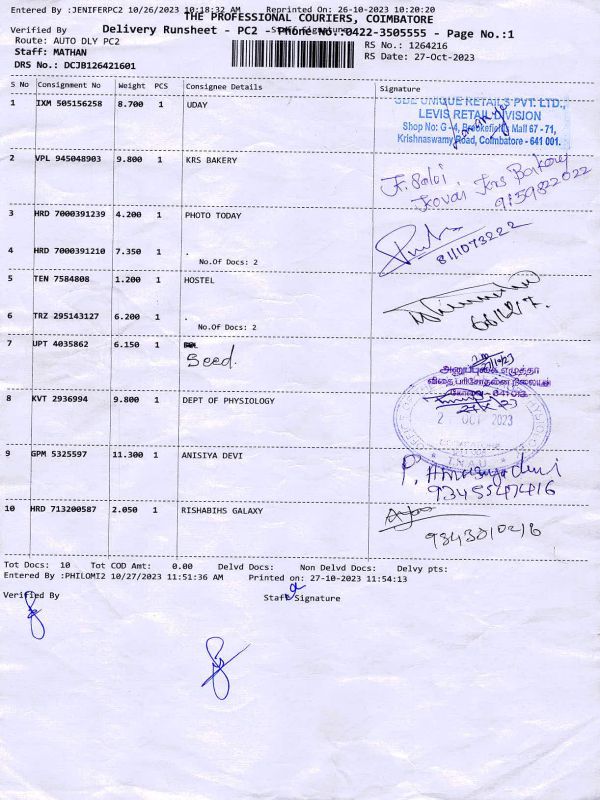 Entered By :JENIFERPC2 10/26/2023 10:18:32 AM Reprinted On :26-10-2023 10:20:20
THE PROFESSIONAL COURIERS, COIMBATORE
Verified By Staff Signature
Delivery Runsheet - PC2 - Phone No.:0422-3505555 - Page No.:1
Route: AUTO DLY PC2 RS No.: 1264216
Staff: MATHAN RS Date: 27-Oct-2023
DRS No.: DCJB126421601
S No Consignment No Weight PCS Consignee Details Signature
1 IXM 505156258 8.700 1 UDAY
SDL UNIQUE RETAILS PVT. LTD.,
LEVIS RETAIL DIVISION
Shop No: G-4, Brookefields Mall 67 - 71,
Krishnaswamy Road, Coimbatore - 641 001.
2 VPL 945048903 9.800 1 KRS BAKERY
Kovai Krs Bakery
9159822022
3 HRD 7000391239 4.200 1 PHOTO TODAY
4 HRD 7000391210 7.350 1 .
No.Of Docs: 2
8111073222
5 TEN 7584808 1.200 1 HOSTEL
6 TRZ 295143127 6.200 1 .
No.Of Docs: 2
7 UPT 4035862 6.150 1
Seed.
விதை பரிசோதனை நிலையம்
கோவை - 641 013
8 KVT 2936994 9.800 1 DEPT OF PHYSIOLOGY
2 OCT 2023
COIMBATORE
T N A U
9 GPM 5325597 11.300 1 ANISIYA DEVI
P. Anasuya devi
9345547416
10 HRD 713200587 2.050 1 RISHABIHS GALAXY
9843010216
Tot Docs: 10 Tot COD Amt: 0.00 Delvd Docs: Non Delvd Docs: Delvy pts:
Entered By :PHILOMI2 10/27/2023 11:51:36 AM Printed on: 27-10-2023 11:54:13
Verified By Staff Signature